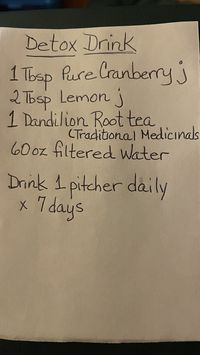 Detox Drink
1 Tbsp Pure Cranberry j
2 Tbsp Lemon j
1 Dandilion Root tea
(Traditional Medicinals
60oz filtered Water
Drink 1 pitcher daily
x 7 days